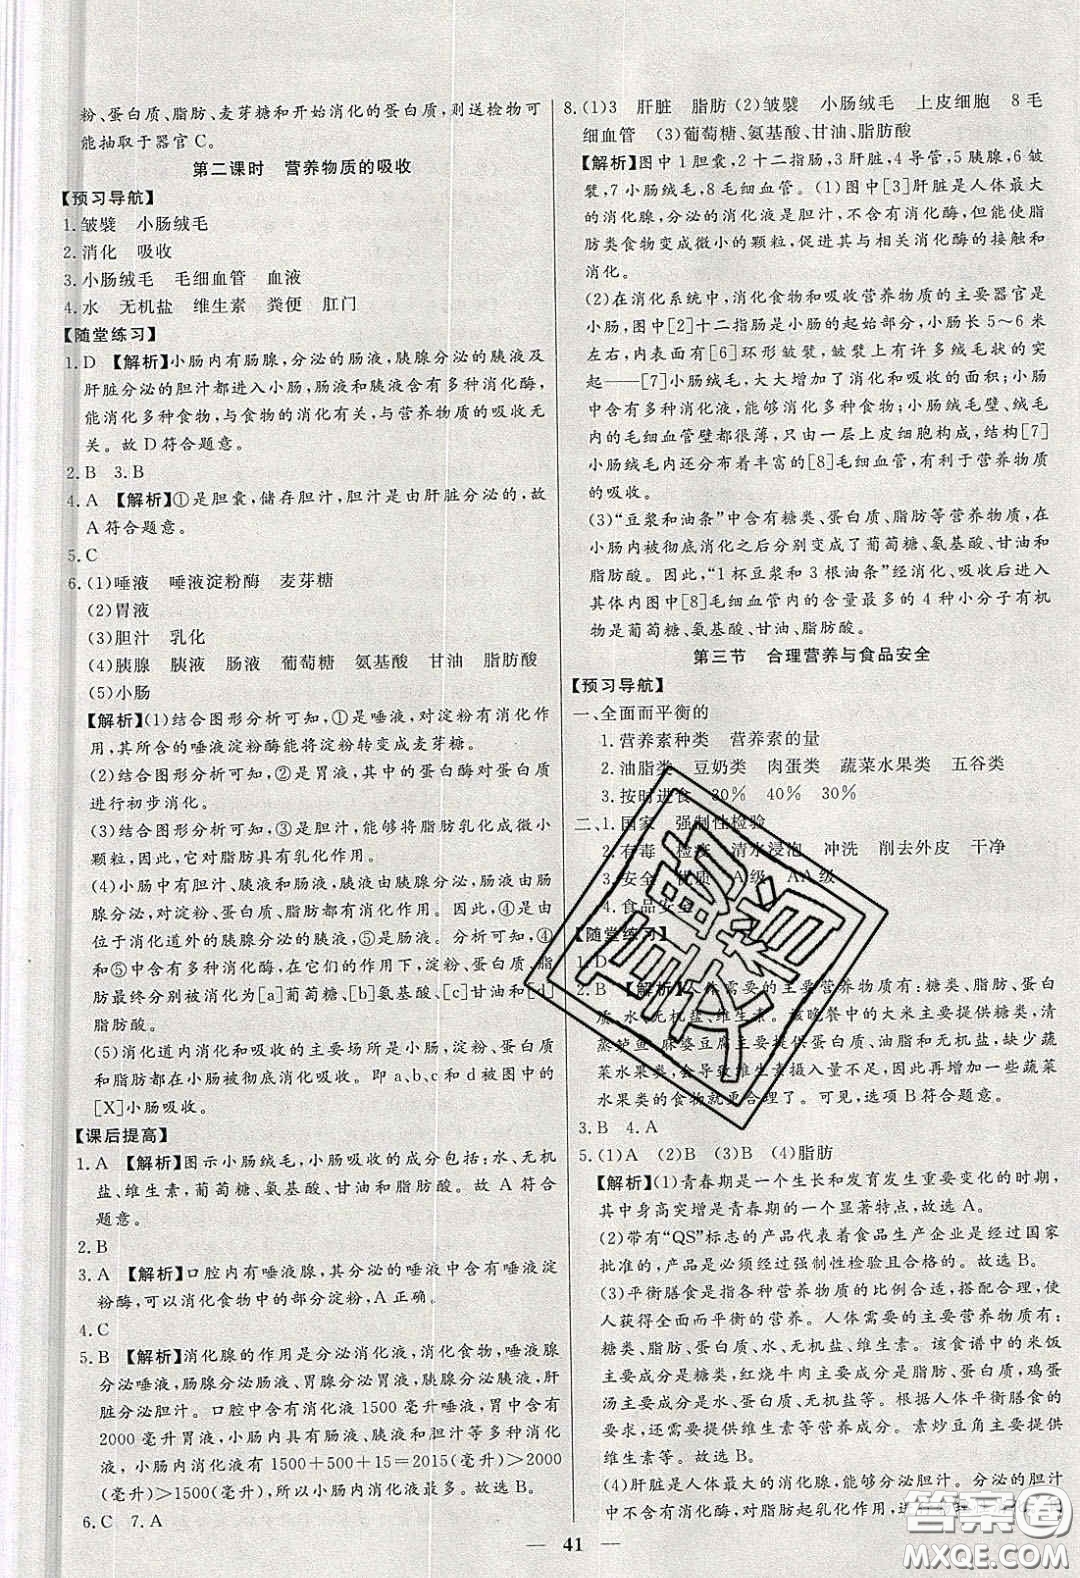 粉、蛋白质、脂肪、麦芽糖和开始消化的蛋白质,则送检物可
能抽取于器官 C。
第二课时 营养物质的吸收
【预习导航】
1.皱襞 小肠绒毛
2.消化 吸收
3.小肠绒毛 毛细血管 血液
4.水 无机盐 维生素 粪便 肛门
【随堂练习】
1.D 【解析】小肠内有肠腺,分泌的肠液,胰腺分泌的胰液及
肝脏分泌的胆汁都进入小肠,肠液和胰液含有多种消化酶,
能消化多种食物,与食物的消化有关,与营养物质的吸收无
关。故 D 符合题意。
2.B 3.B
4.A 【解析】①是胆囊,储存胆汁,胆汁是由肝脏分泌的,故
A 符合题意。
5.C
6.(1)唾液 唾液淀粉酶 麦芽糖
(2)胃液
(3)胆汁 乳化
(4)胰腺 胰液 肠液 葡萄糖 氨基酸 甘油 脂肪酸
(5)小肠
【解析】(1)结合图形分析可知,①是唾液,对淀粉有消化作
用,其所含的唾液淀粉酶能将淀粉转变成麦芽糖。
(2)结合图形分析可知,②是胃液,其中的蛋白酶对蛋白质
进行初步消化。
(3)结合图形分析可知,③是胆汁,能够将脂肪乳化成微小
颗粒,因此,它对脂肪具有乳化作用。
(4)小肠中有胆汁、胰液和肠液,胰液由胰腺分泌,肠液由肠
腺分泌,对淀粉、蛋白质、脂肪都有消化作用。因此,④是由
位于消化道外的胰腺分泌的胰液,⑤是肠液。分析可知,④
和⑤中含有多种消化酶,在它们的作用下,淀粉、蛋白质、脂
肪最终分别被消化为[a]葡萄糖、[b]氨基酸、[c]甘油和[d]
脂肪酸。
(5)消化道内消化和吸收的主要场所是小肠,淀粉、蛋白质
和脂肪都在小肠被彻底消化吸收。即 a、b、c 和 d 被图中的
[X]小肠吸收。
【课后提高】
1.A 【解析】图示小肠绒毛,小肠吸收的成分包括:水、无机
盐、维生素,葡萄糖、氨基酸、甘油和脂肪酸。故 A 符合
题意。
2.B
3.A 【解析】口腔内有唾液腺,其分泌的唾液中含有唾液淀
粉酶,可以消化食物中的部分淀粉,A正确。
4.C
5.B 【解析】消化腺的作用是分泌消化液,消化食物,唾液腺
分泌唾液、肠腺分泌肠液、胃腺分泌胃液、胰腺分泌胰液,肝
脏分泌胆汁。口腔中含有消化液 1500 毫升唾液,胃中含有
2000 毫升胃液,小肠内具有肠液、胰液和胆汁等多种消化
液,小肠内消化液有 1500+500+15=2015(毫升)>2000
(毫升)>1500(毫升),所以小肠内消化液最多。故选 B。
6.C 7.A
8.(1)3 肝脏 脂肪 (2)皱襞 小肠绒毛 上皮细胞 8毛
细血管 (3)葡萄糖、氨基酸、甘油、脂肪酸
【解析】图中 1 胆囊,2 十二指肠,3 肝脏,4 导管,5 胰腺,6 皱
襞,7 小肠绒毛,8 毛细血管。(1)图中[3]肝脏是人体最大
的消化腺,分泌的消化液是胆汁,不含有消化酶,但能使脂
肪类食物变成微小的颗粒,促进其与相关消化酶的接触和
消化。
(2)在消化系统中,消化食物和吸收营养物质的主要器官是
小肠,图中[2]十二指肠是小肠的起始部分,小肠长 5~6 米
左右,内表面有[6]环形皱襞,皱襞上有许多绒毛状的突
起——[7]小肠绒毛,大大增加了消化和吸收的面积;小肠
中含有多种消化液,能够消化多种食物;小肠绒毛壁、绒毛
内的毛细血管壁都很薄,只由一层上皮细胞构成,结构[7]
小肠绒毛内还分布着丰富的[8]毛细血管,有利于营养物质
的吸收。
(3)“豆浆和油条”中含有糖类、蛋白质、脂肪等营养物质,在
小肠内被彻底消化之后分别变成了葡萄糖、氨基酸、甘油和
脂肪酸。因此,“1 杯豆浆和 3 根油条”经消化、吸收后,进入
具体内图中[8]毛细血管内的含量最多的 4 种小分子有机
物是葡萄糖、氨基酸、甘油、脂肪酸。
第三节 合理营养与食品安全
【预习导航】
一、全面而平衡的
1.营养素种类 营养素的量
2.油脂类 豆奶类 肉蛋类 蔬菜水果类 五谷类
3.按时进食 30% 40% 30%
二、1.国家 强制性检验
2.有毒 检疫 清水浸泡 冲洗 削去外皮 干净
3.安全 优质 A 级 AA 级
4.食品安全
【随堂练习】
1.D
2.B 【解析】人体需要的主要营养物质有:糖类、脂肪、蛋白
质、水、无机盐、维生素。该晚餐中的大米主要提供糖类,清
蒸鲈鱼、麻婆豆腐主要提供蛋白质、油脂和无机盐,缺少蔬
菜水果类,会导致维生素摄入量不足,因此再增加一些蔬菜
水果类的食物就更合理了。可见,选项 B 符合题意。
3.B 4.A
5.(1)A (2)B (3)B (4)脂肪
【解析】(1)青春期是一个生长和发育发生重要变化的时期,
其中身高突增是青春期的一个显著特点,故选 A。
(2)带有“QS”标志的产品代表着食品生产企业是经过国家
批准的,产品是必须经过强制性检验且合格的。故选 B。
(3)平衡膳食是指各种营养物质的比例合适,搭配合理,使
人获得全面而平衡的营养。人体需要的主要营养物质有:
糖类、脂肪、蛋白质、水、无机盐、维生素。该食谱中的米饭
主要成分是糖类,红烧牛肉主要成分是脂肪、蛋白质,鸡蛋
汤主要成分是水、蛋白质、无机盐等。根据人体平衡膳食的
要求,还应该补充提供维生素等营养成分。素炒豆角主要
提供维生素等。故选 B。
(4)肝脏是人体最大的消化腺,能够分泌胆汁。分泌的胆汁
中不含有消化酶,对脂肪起乳化作用,进
41
作业精灵
答案圈
MXQE.COM